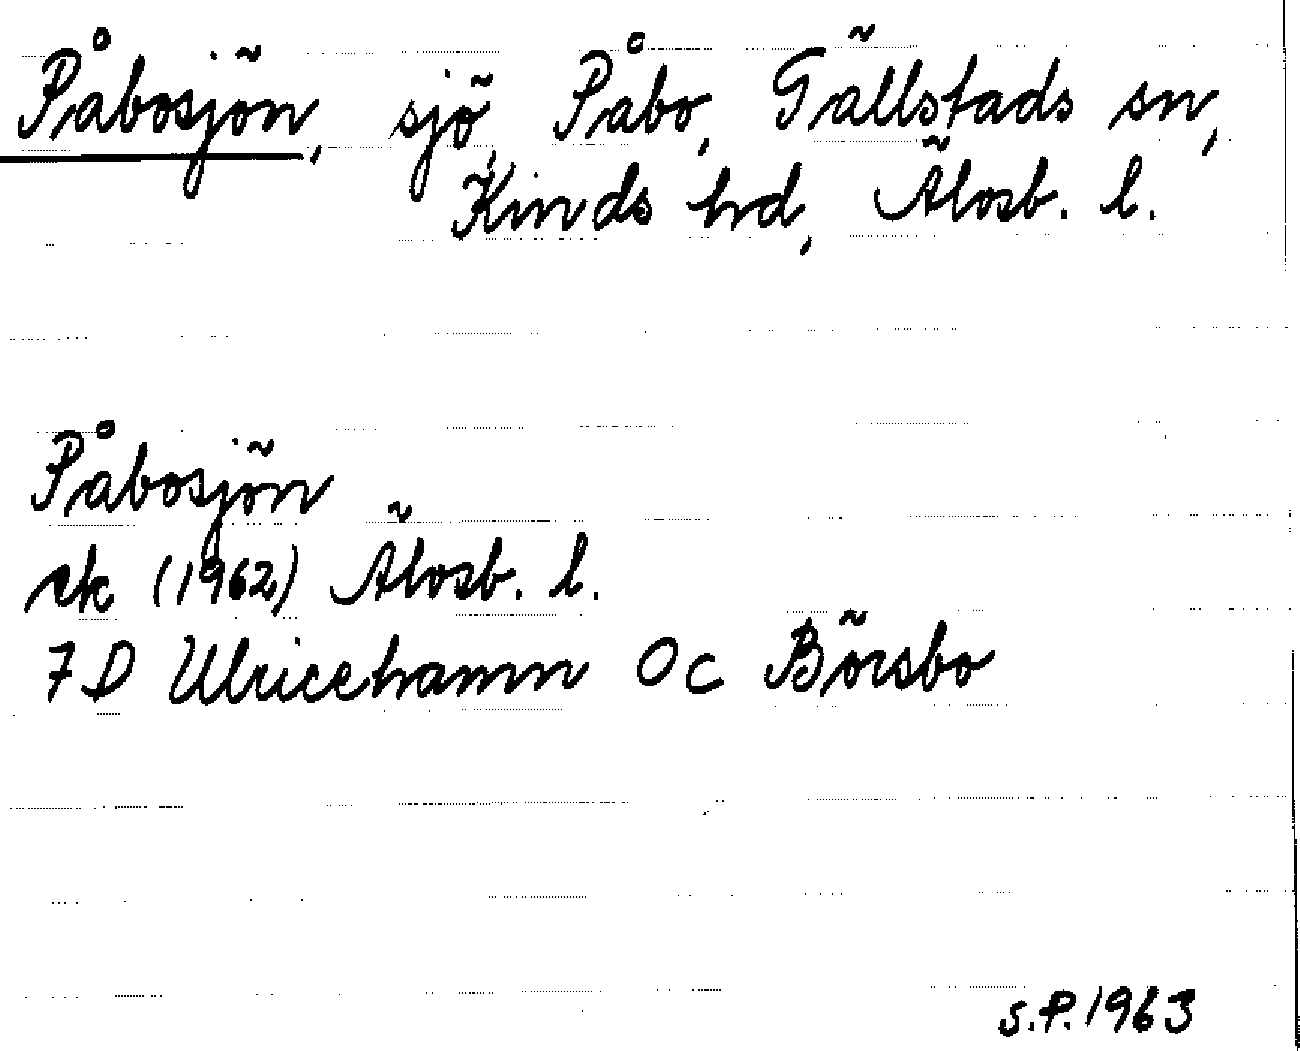 Påbosjön, sjö, Påbo, Gällstads sn,
Kinds hrd, Älvsb. l.
Påbosjön
rk (1962) Älvsb. l.
7D Ulricehamn 0c Börsbo
S.P. 1963